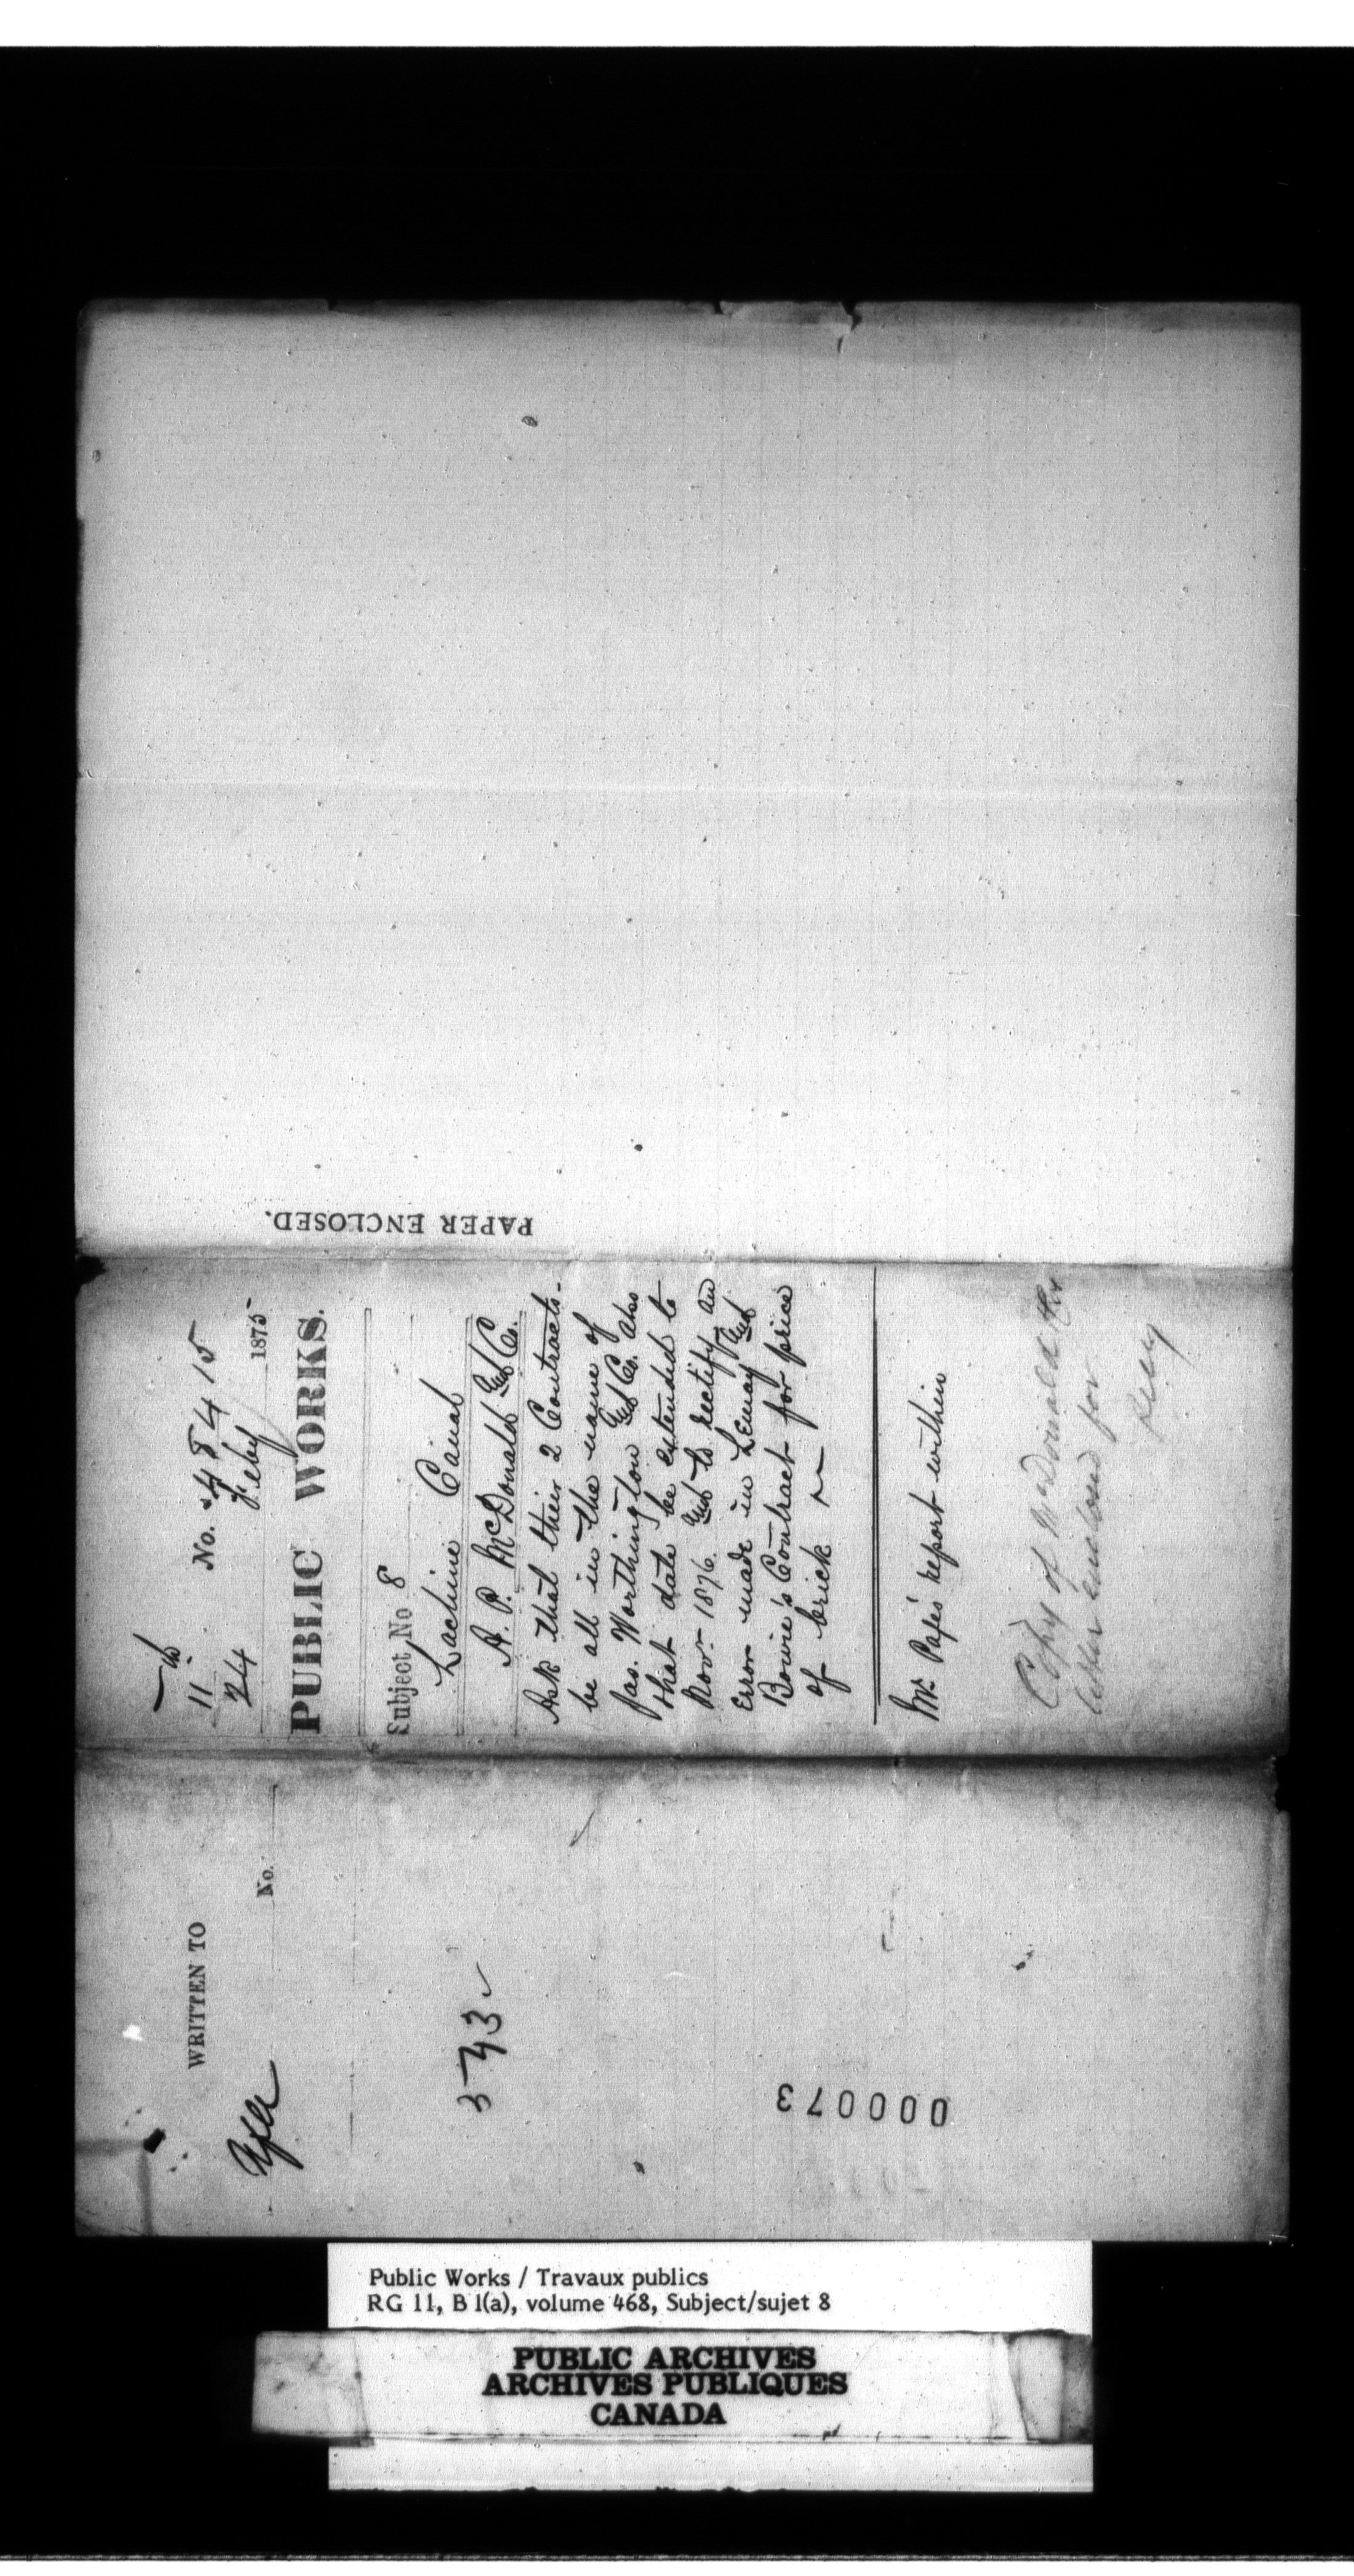 PAPER ENCLOSED.
No. 48415
11
24 Feby 1875
PUBLIC WORKS.
Subject No 8
Lachine Canal
A. P. McDonald & Co.
Ask that their 2 Contracts-
be all in the name of
Jas. Worthington & Co. also
that date be extended to
Nov. 1876. & to rectify an
Error made in Lemay &
Bowie's Contract for price
of brick
Mr. Page's report within
Copy of McDonald
letter enclosed for
WRITTEN TO
No.
543
000073
Public Works / Travaux publics
RG 11, B 1(a), volume 468, Subject/sujet 8
PUBLIC ARCHIVES
ARCHIVES PUBLIQUES
CANADA